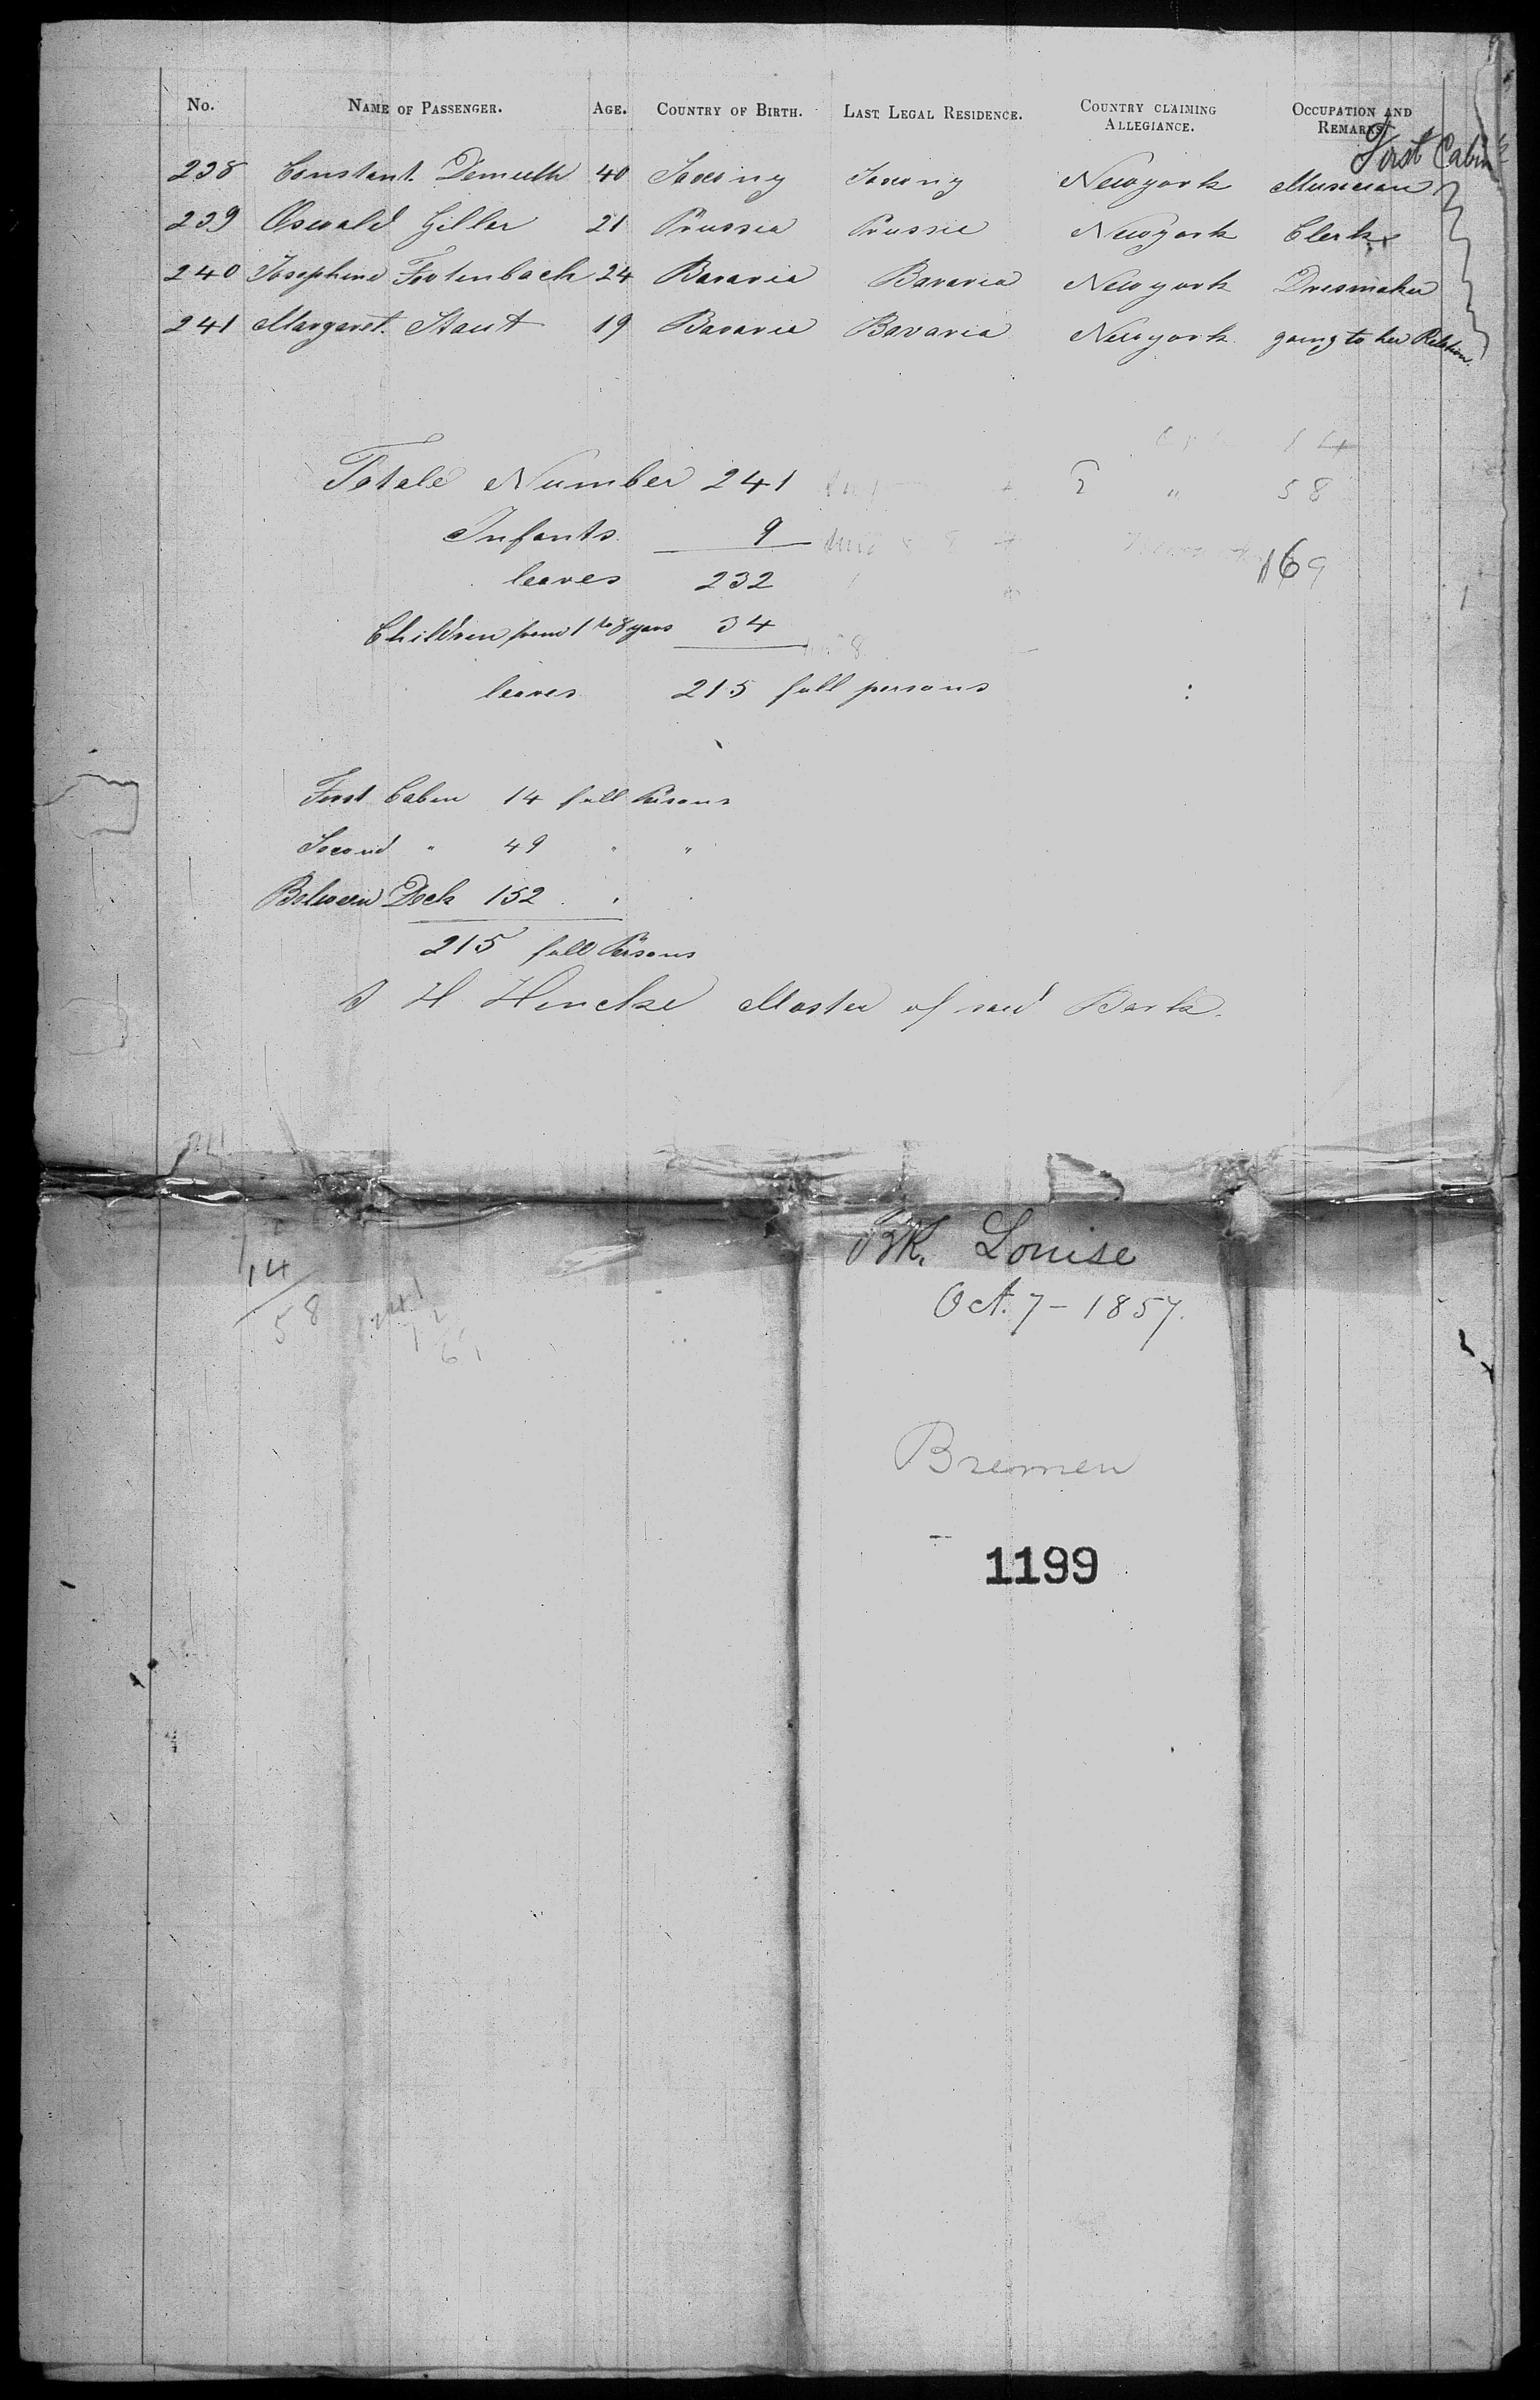 No. NAME OF PASSENGER. AGE. COUNTRY OF BIRTH. LAST LEGAL RESIDENCE. COUNTRY CLAIMING ALLEGIANCE. OCCUPATION AND REMARKS.
First Cabin
238 Constant. Demuth 40 Saxony Saxony Newyork Musician
239 Oswald Giller 21 Prussia Prussia Newyork Clerk
240 Josephine Frotenbach 24 Bavaria Bavaria Newyork Dresmaker
241 Margaret. Staut 19 Bavaria Bavaria Newyork going to her Relation.
14
Totale Number 241
2 " 58
Infants 9
169
leaves 232
Children from 1 to 8 years 34
leaves 215 full persons
First Cabin 14 full Persons
Second " 49 " "
Between Deck 152 " "
215 full Persons
J H Hencke Master of said Bark.
Bk. Louise
14
58
Oct. 7 - 1857.
Bremen
1199